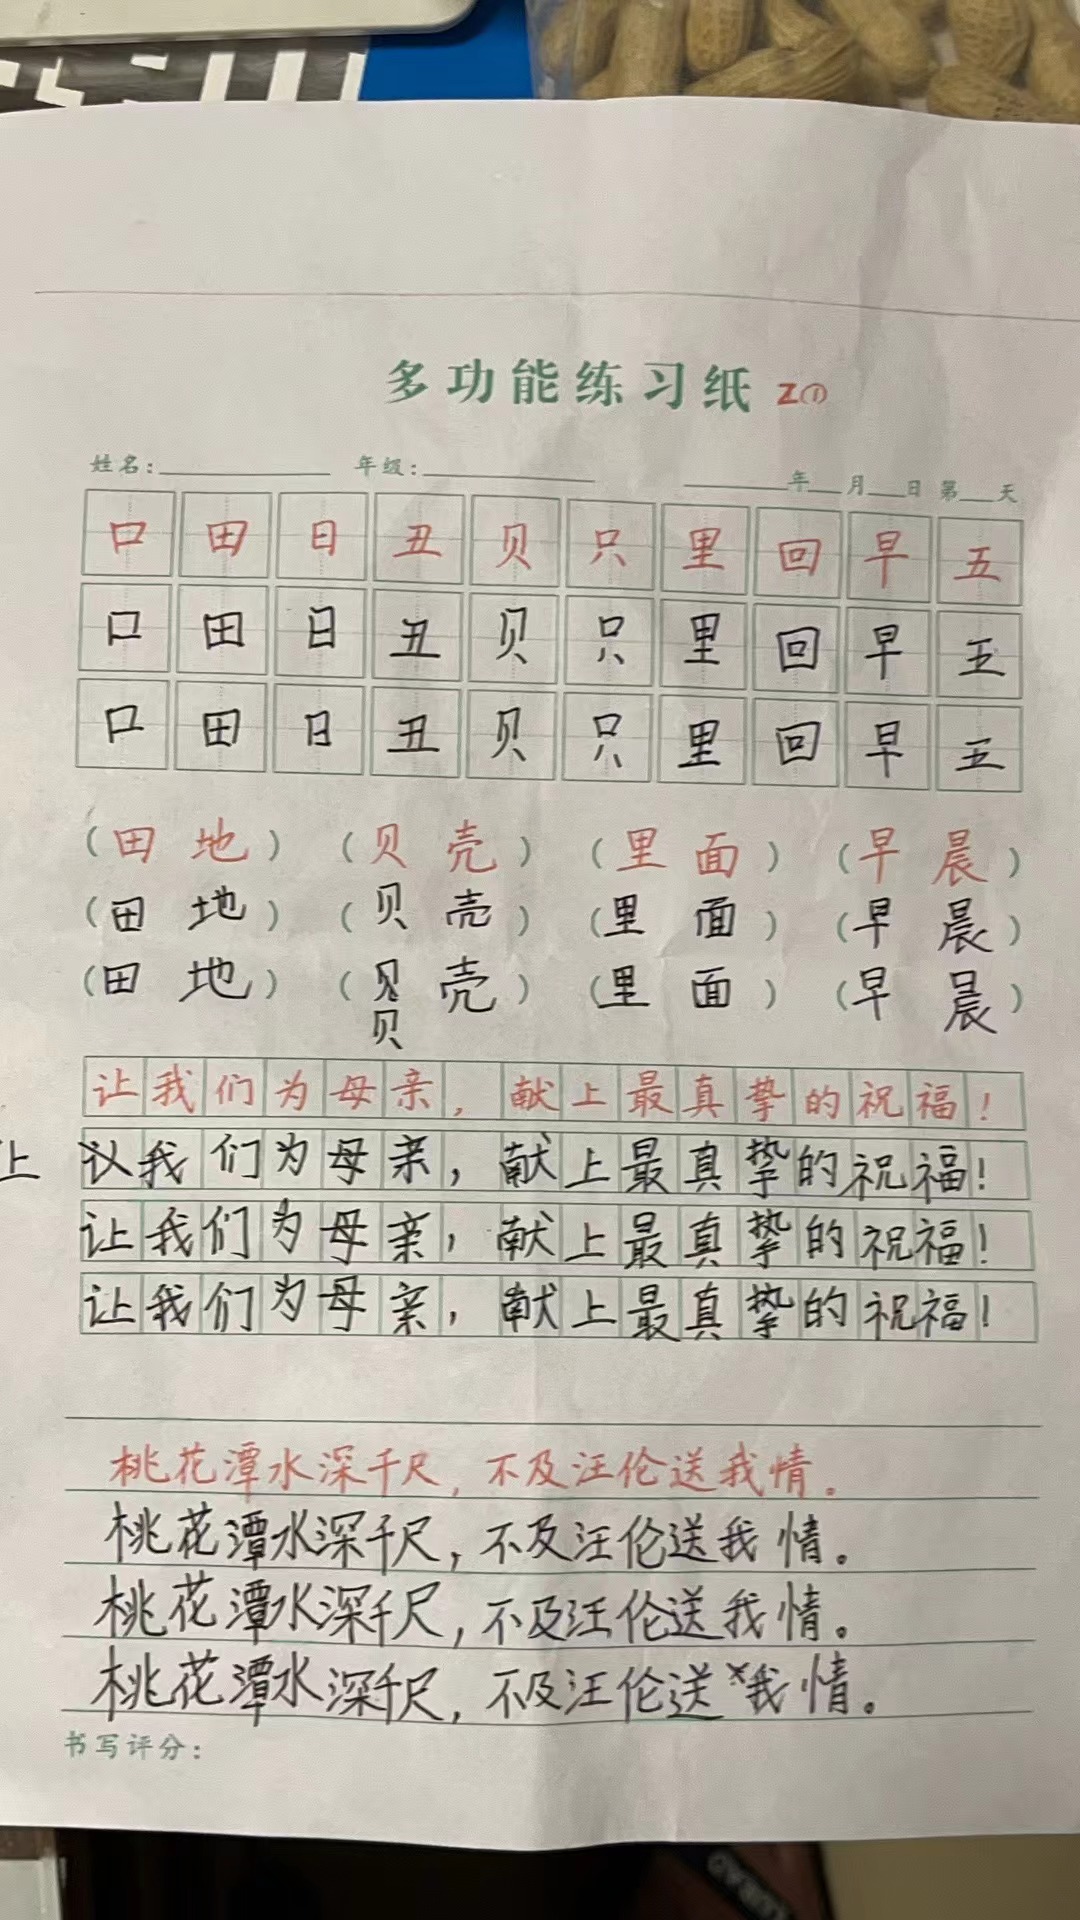 多功能练习纸 Z①
姓名： 年级： 年 月 日 第 天
口 田 日 丑 贝 只 里 回 早 五
口 田 日 丑 贝 只 里 回 早 五
口 田 日 丑 贝 只 里 回 早 五
（田 地） （贝 壳） （里 面） （早 晨）
（田 地） （贝 壳） （里 面） （早 晨）
（田 地） （贝 壳） （里 面） （早 晨）
贝
让我们为母亲，献上最真挚的祝福！
上 议我们为母亲，献上最真挚的祝福！
让我们为母亲，献上最真挚的祝福！
让我们为母亲，献上最真挚的祝福！
桃花潭水深千尺，不及汪伦送我情。
桃花潭水深千尺，不及汪伦送我情。
桃花潭水深千尺，不及汪伦送我情。
桃花潭水深千尺，不及汪伦送我情。
书写评分：